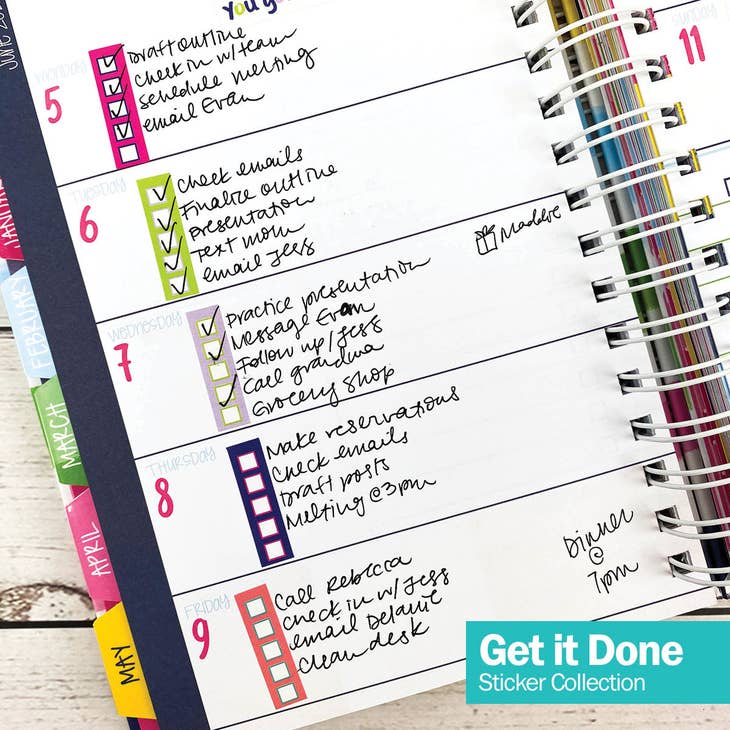 JUNE
You
MONDAY
5
Draft outline
Check in w/team
schedule meeting
email Evan
TUESDAY
6
Check emails
Finalize outline
Presentation
Text mom
email Jess
Madeline
WEDNESDAY
7
Practice presentation
Message Evan
Follow up/Jess
Call grandma
Grocery shop
THURSDAY
8
Make reservations
Check emails
Draft posts
Meeting @ 3pm
FRIDAY
9
Call Rebecca
Check in w/Jess
email Delanie
Clean desk
Dinner
@
7pm
SUNDAY
11
JANUARY
FEBRUARY
MARCH
APRIL
MAY
Get it Done
Sticker Collection